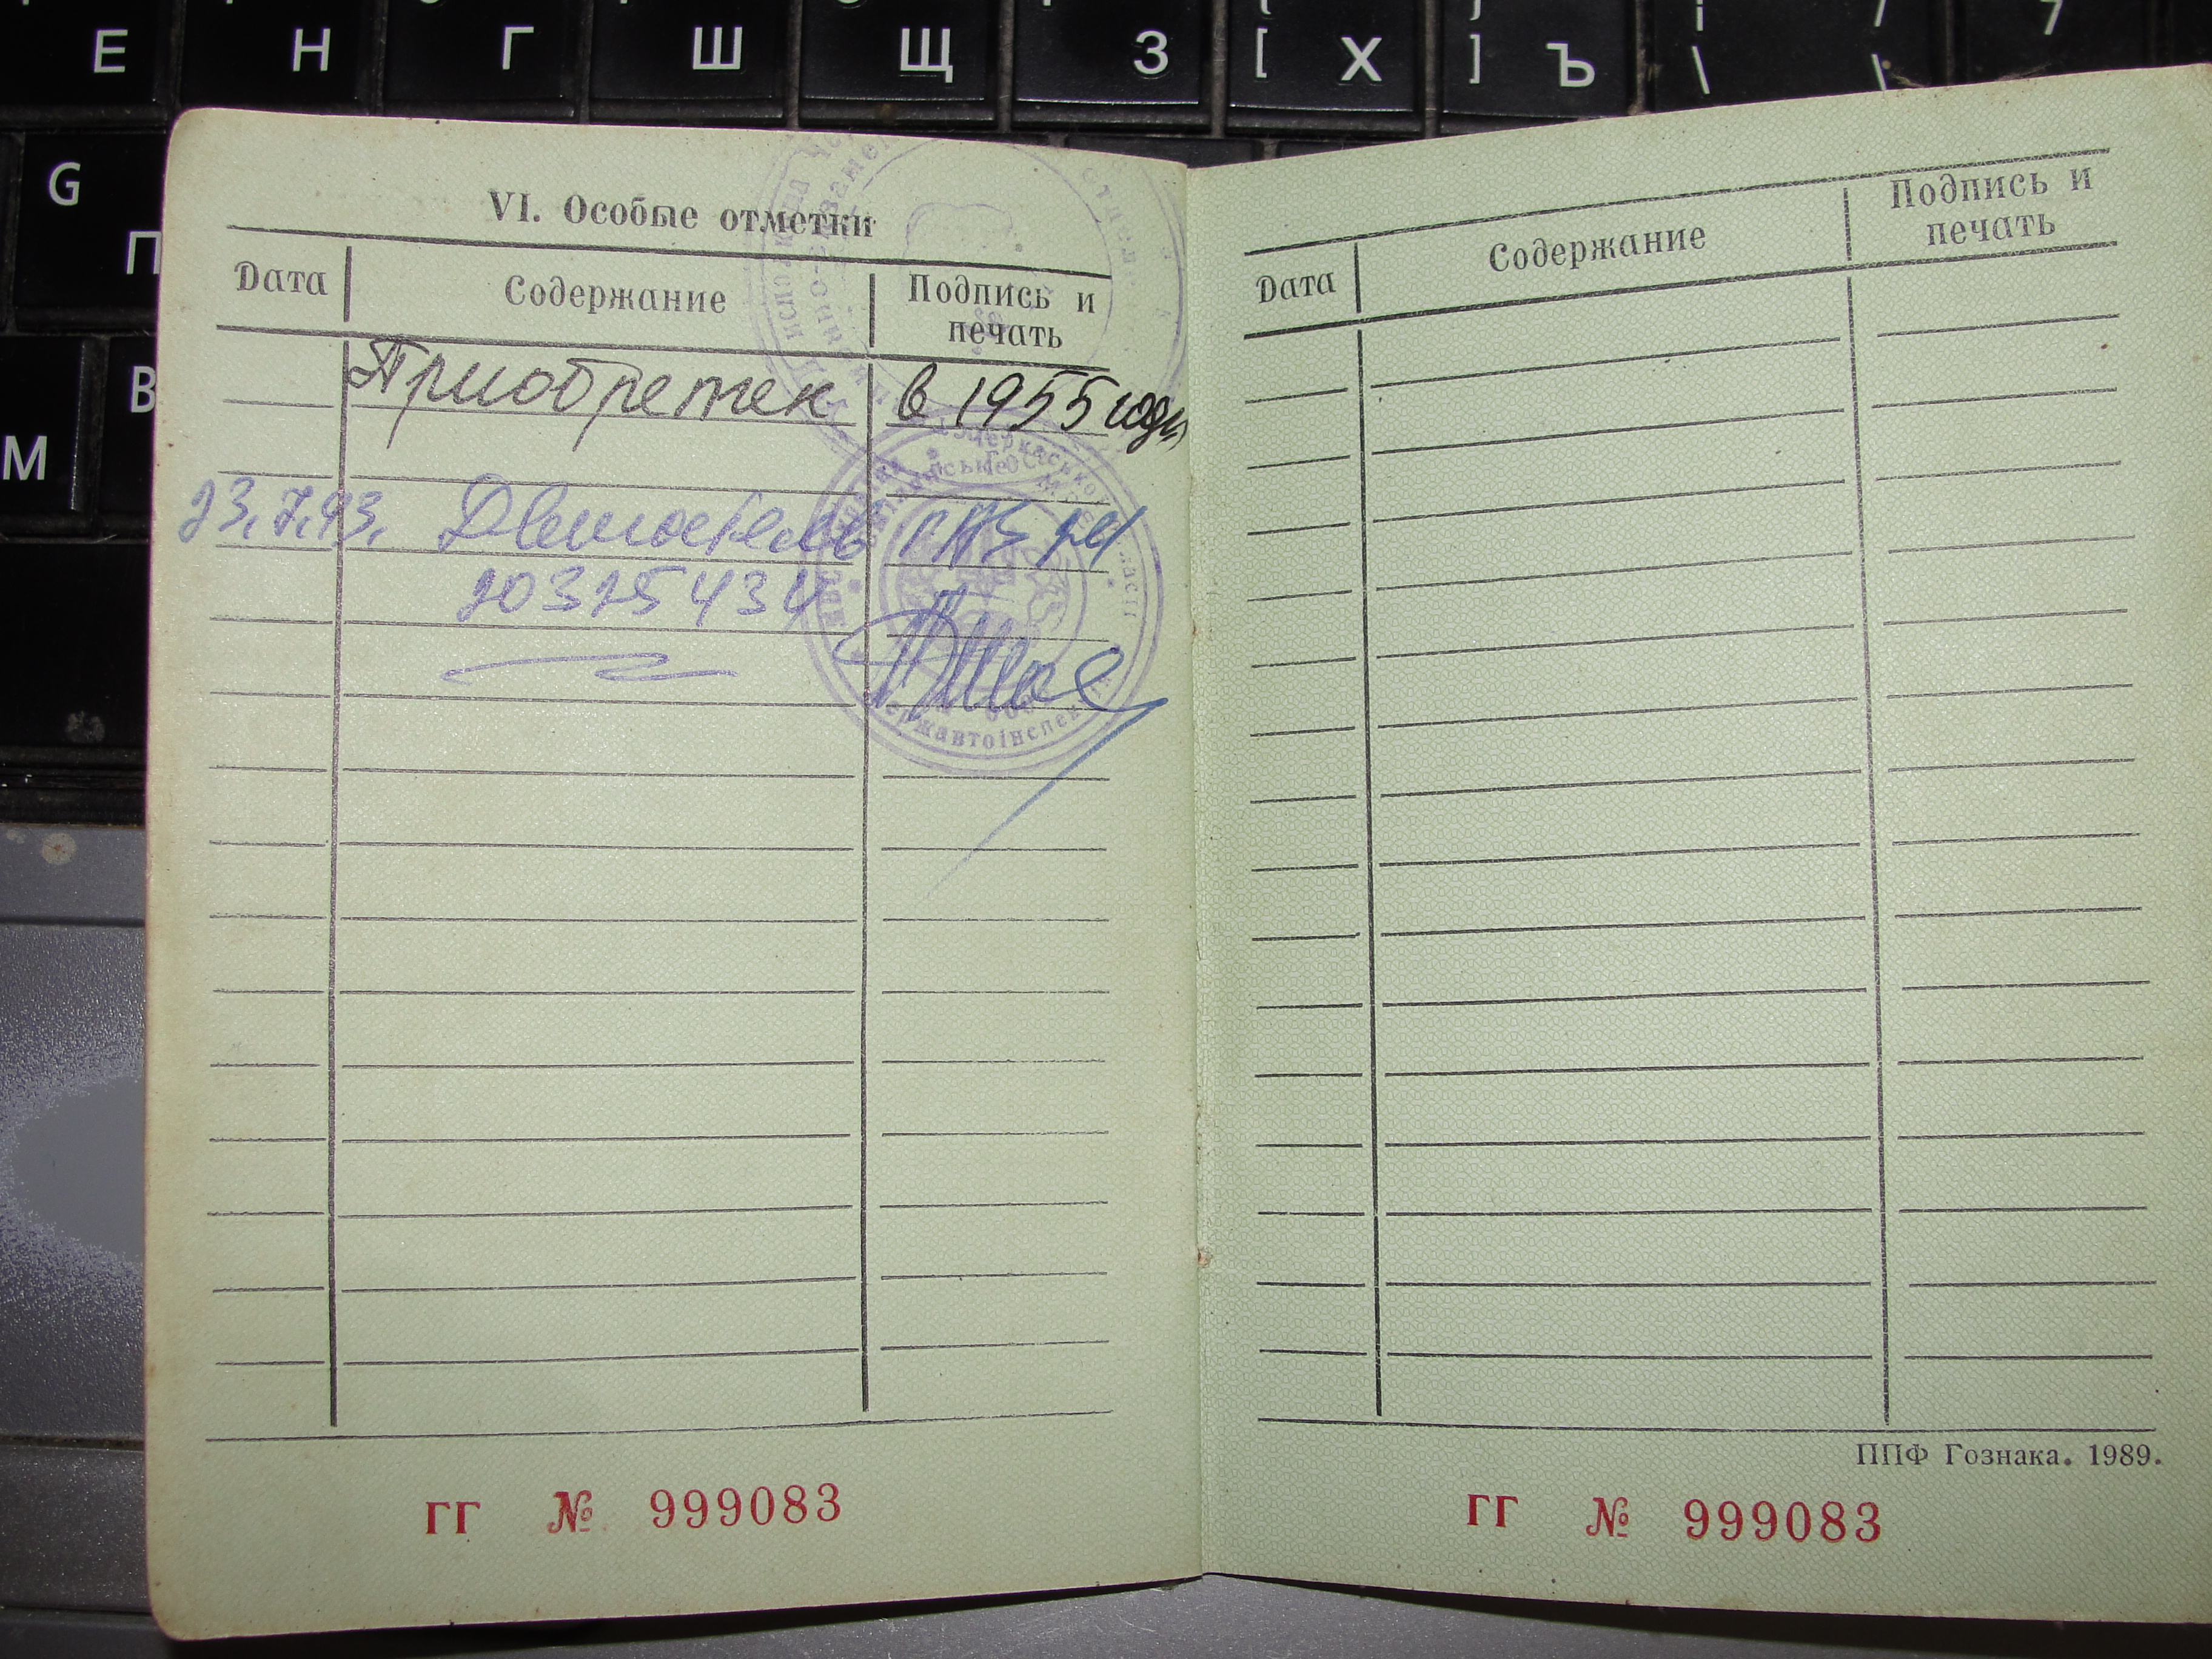 Е Н Г Ш Щ З [ Х ] Ъ \
G
П
В
М
VI. Особые отметки
Дата Содержание Подпись и печать
Приобретен в 1955 году
23.7.93. Двигатель
20325434
Черкаської
державтоінспекц
ГГ № 999083
Дата Содержание Подпись и печать
ППФ Гознака. 1989.
ГГ № 999083